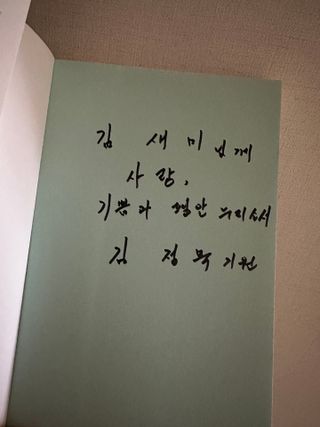 김 새미님께
사랑,
기쁨과 평안 누리소서
김 정묵 기원